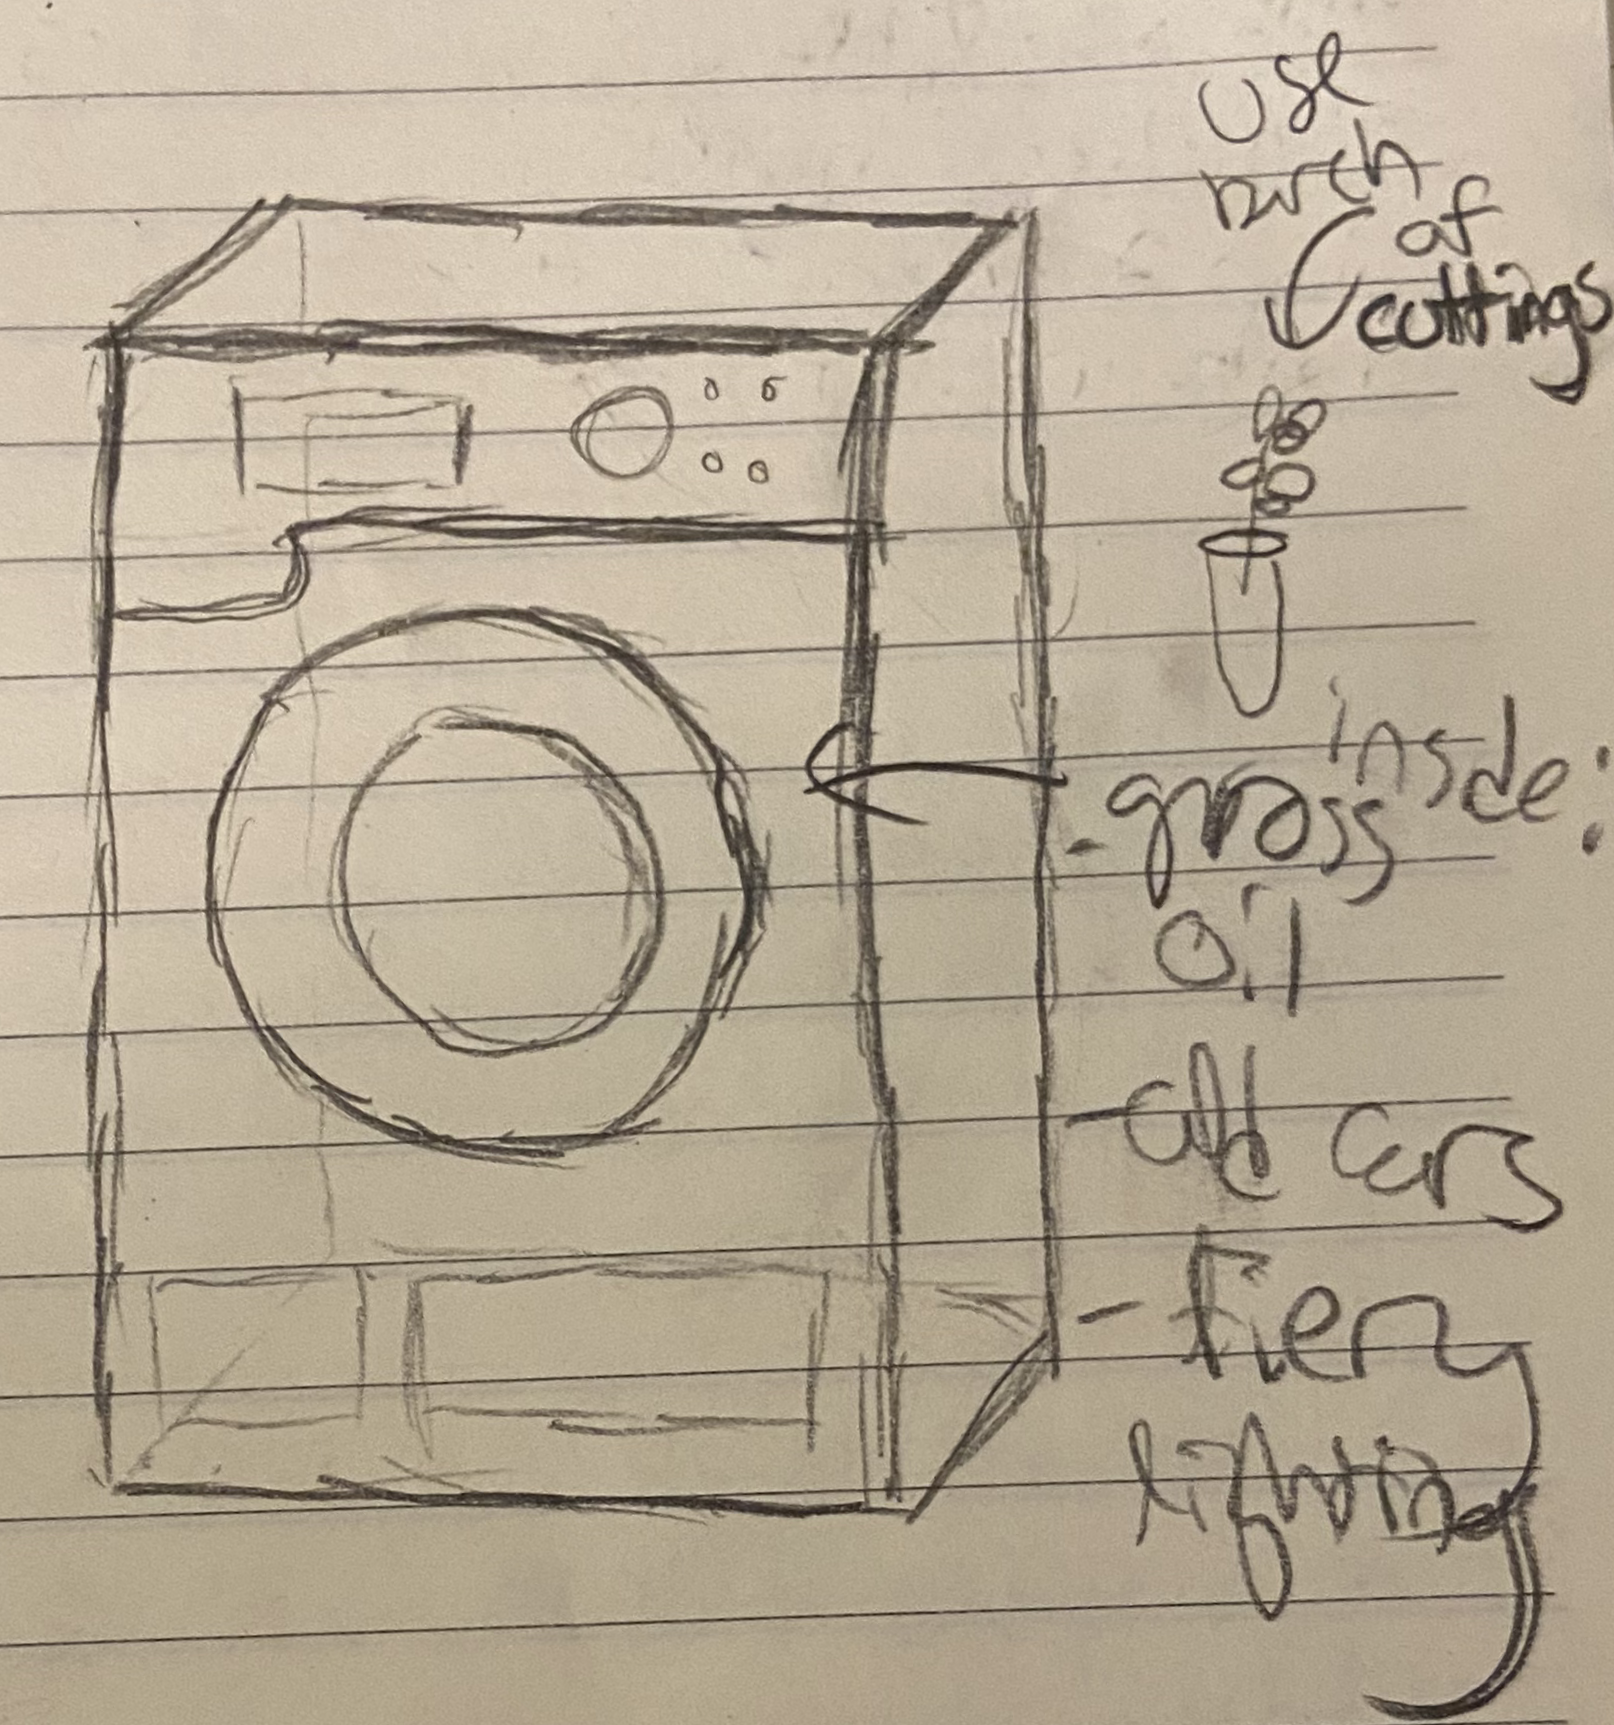 use
of
cuttings
inside:
- gross
oil
- old cars
- fiery
lighting